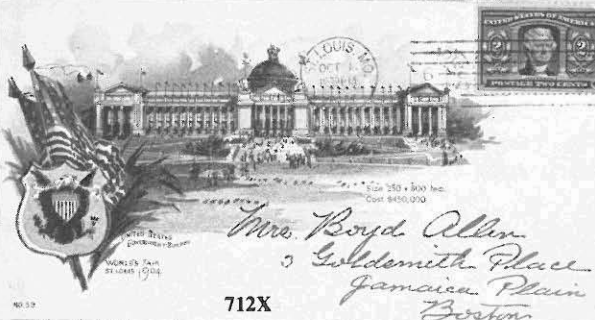 ST. LOUIS, MO.
OCT
UNITED STATES OF AMERICA
2 2
POSTAGE TWO CENTS
Size 250 x 800 feet
Cost $450,000
UNITED STATES
GOVERNMENT BUILDING
WORLD'S FAIR
ST. LOUIS 1904
Mrs. Boyd Allen
3 Goldsmith Place
Jamaica Plain
Boston
NO. 59
712X